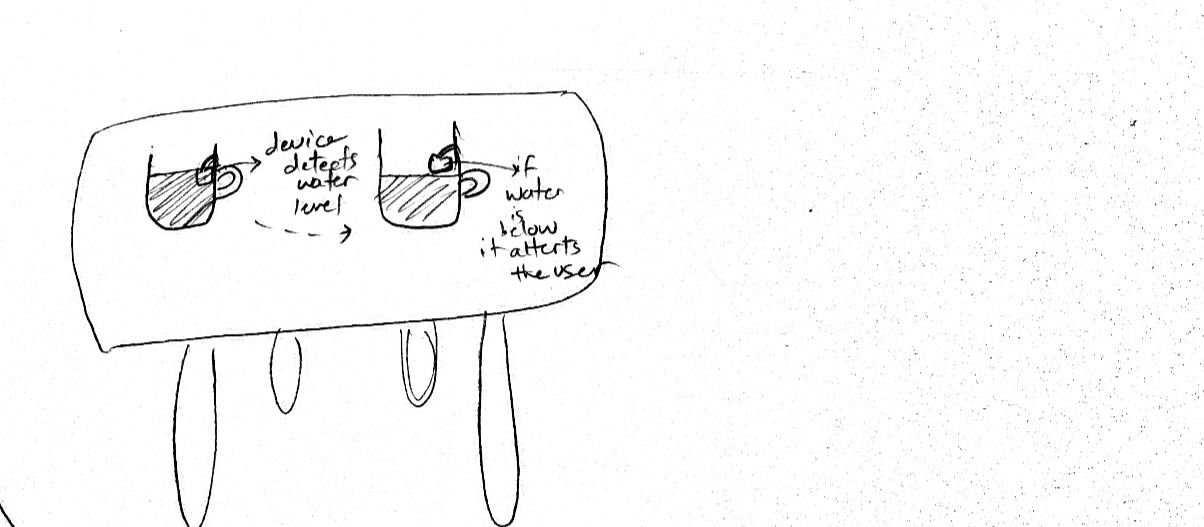 device
detects
water
level
if
water
is
below
it alterts
the user